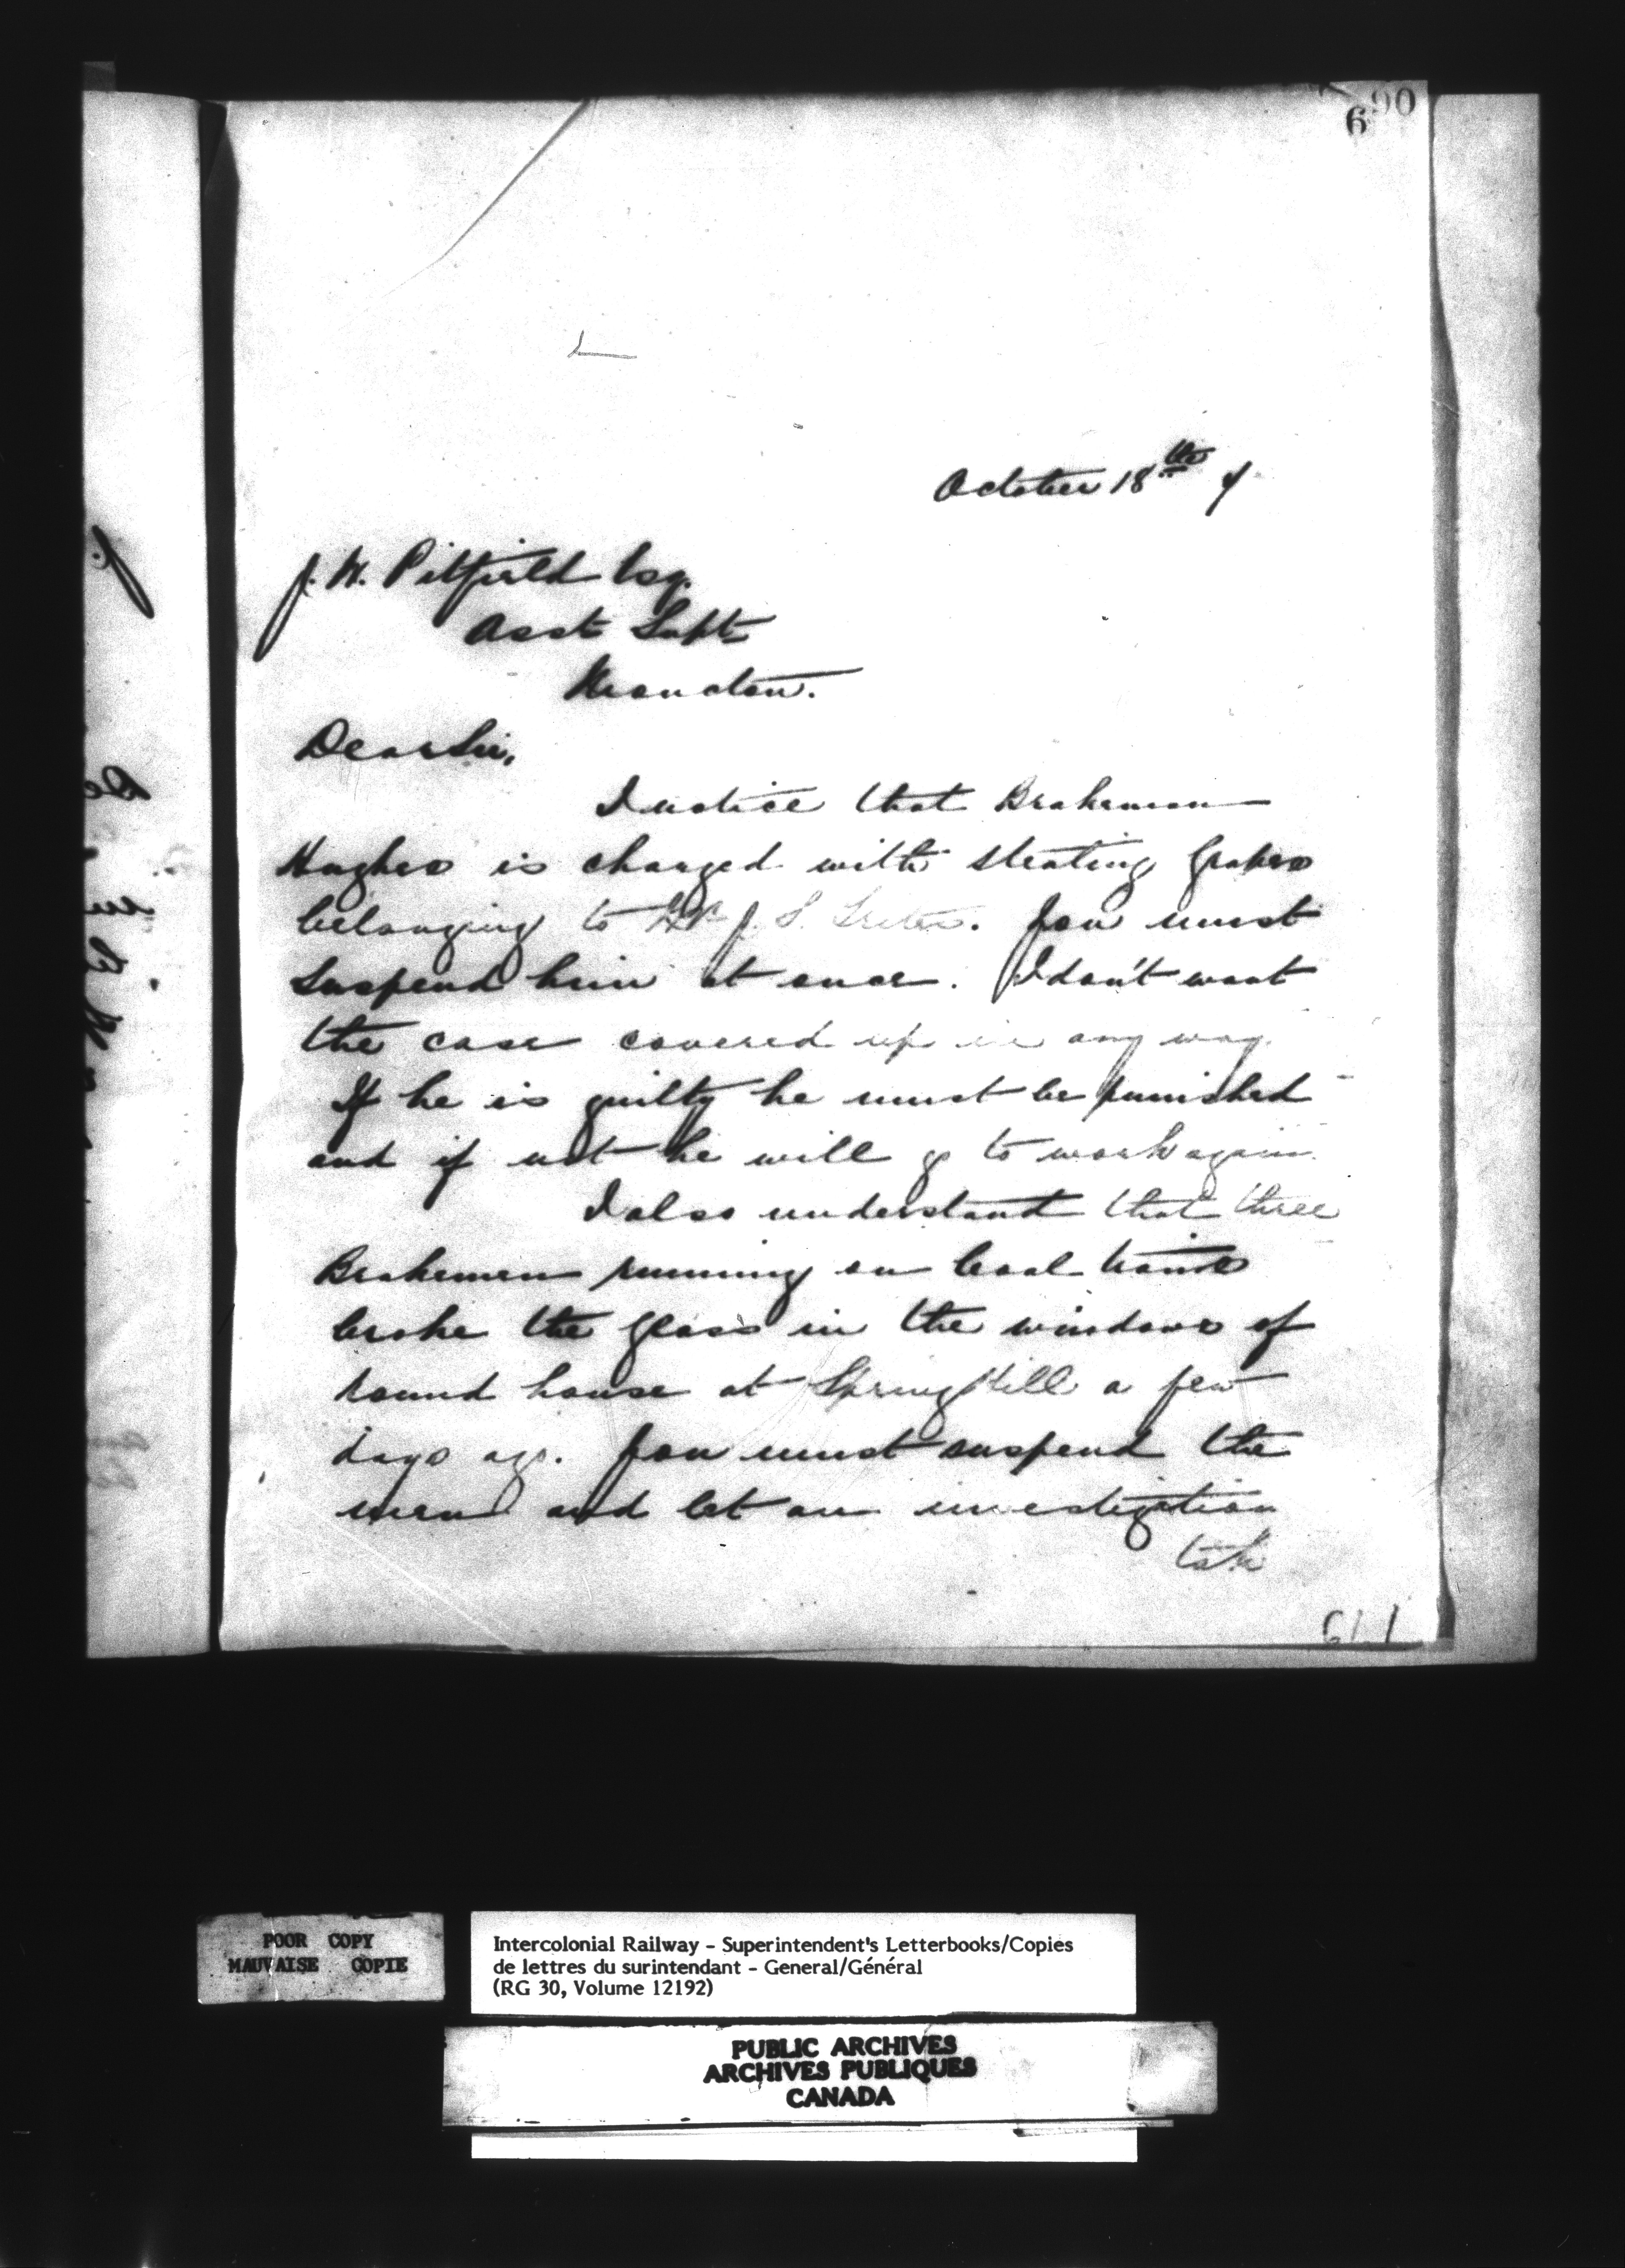 690
October 18th
J. W. Pitfield Esq.
Asst Supt
Moncton.
Dear Sir,
I notice that Brakeman
Hughes is charged with stealing Grapes
belonging to J. S. You must
suspend him at once. I don't want
the case covered up in any way.
If he is guilty he must be punished
and if not he will go to work again.
I also understand that three
Brakemen running on local trains
broke the glass in the windows of
round house at Spring Hill a few
days ago. You must suspend the
men and let an investigation
take
611
POOR COPY
MAUVAISE COPIE
Intercolonial Railway - Superintendent's Letterbooks/Copies
de lettres du surintendant - General/Général
(RG 30, Volume 12192)
PUBLIC ARCHIVES
ARCHIVES PUBLIQUES
CANADA